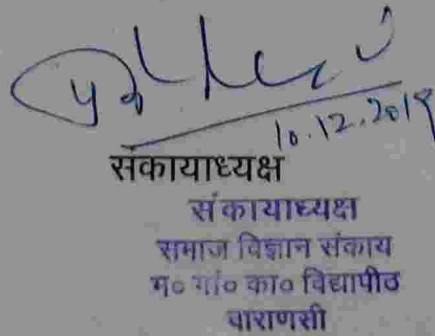 10.12.2019
संकायाध्यक्ष
संकायाध्यक्ष
समाज विज्ञान संकाय
म० गां० का० विद्यापीठ
वाराणसी